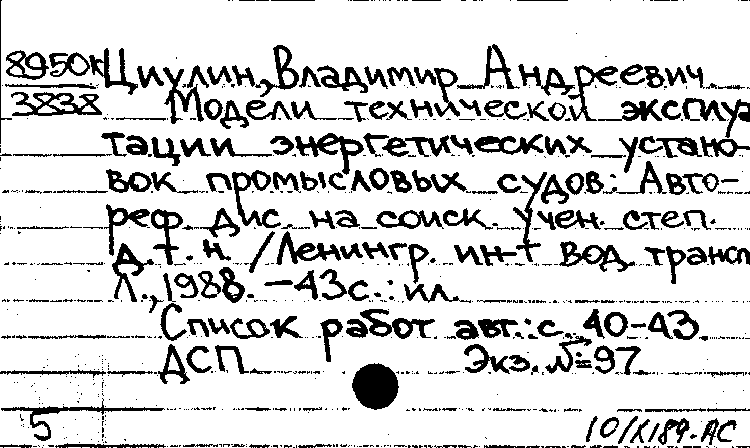 8950к Циулин, Владимир Андреевич.
3838 Модели технической эксплуа
тации энергетических устано-
вок промысловых судов: Авто-
реф. дис. на соиск. учен. степ.
д.т.н. /Ленингр. ин-т вод. трансп
Л., 1988. -43с.: ил.
Список работ авт.: с. 40-43.
ДСП. Экз. №=97.
5 10/X189.АС